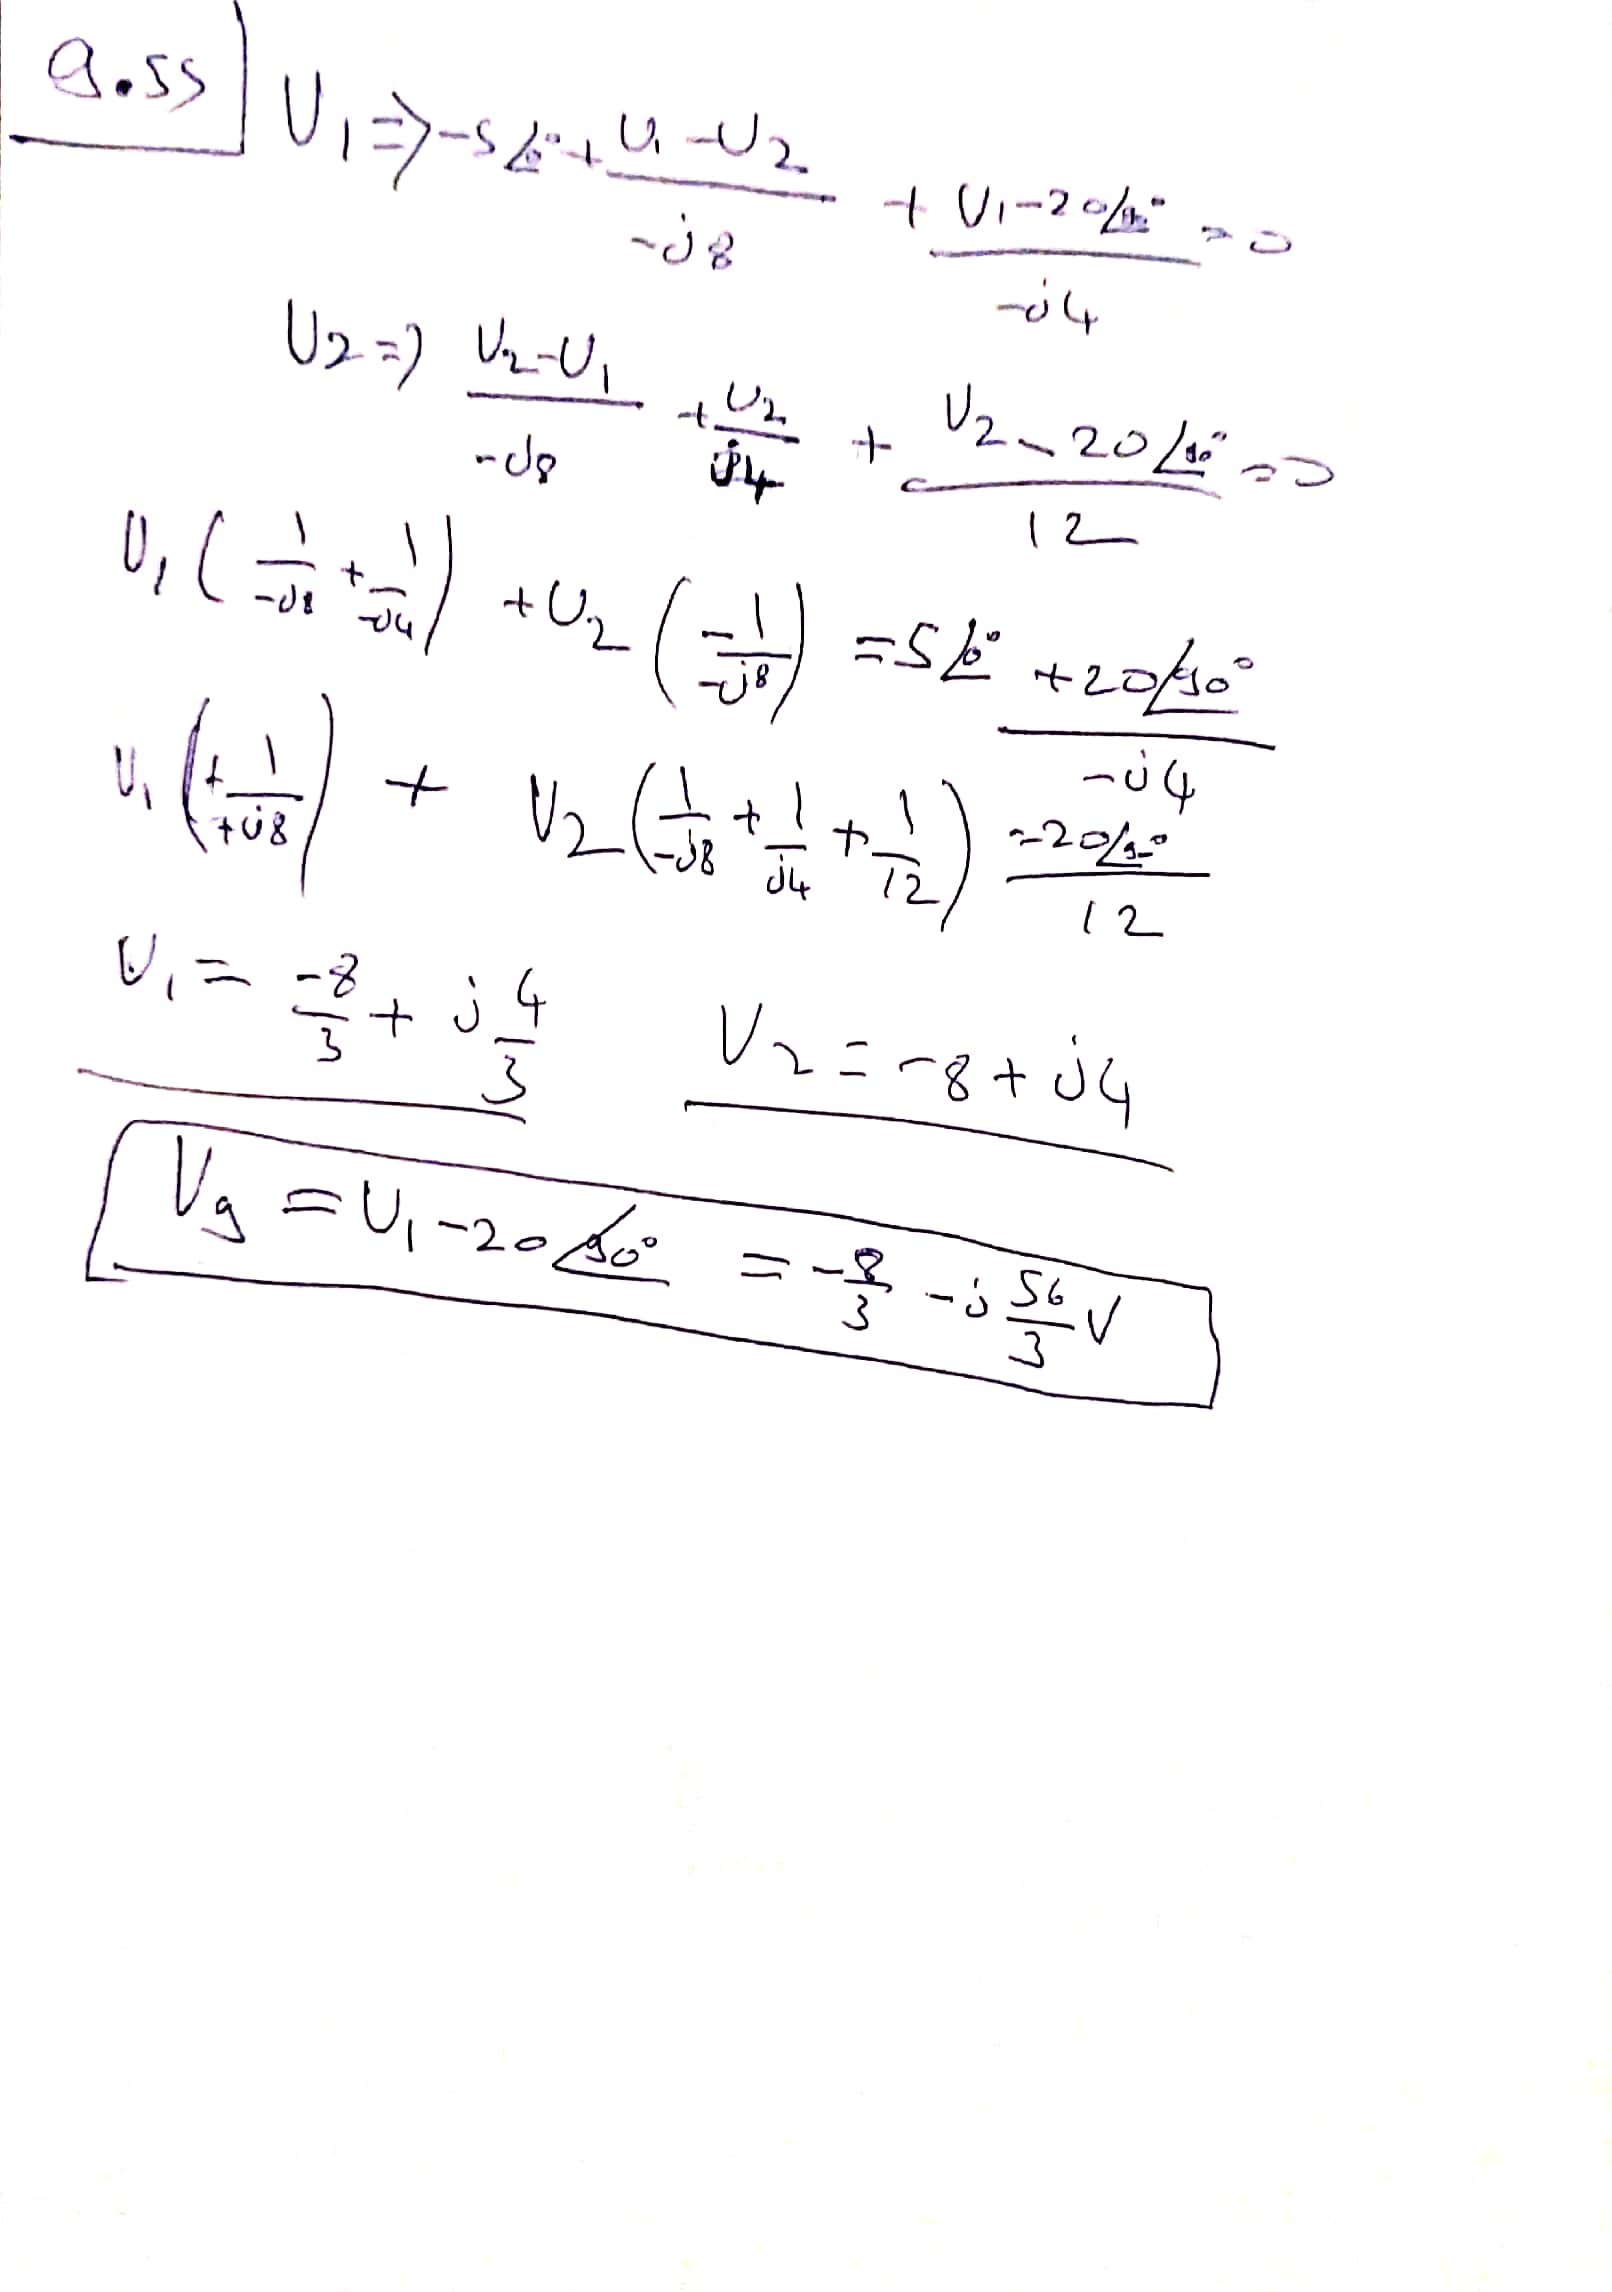 9.55
V1 => -5∠0° + (V1 - V2)/(-j8) + (V1 - 20∠90°)/(-j4) = 0
V2 => (V2 - V1)/(-j8) + V2/(j4) + (V2 - 20∠90°)/12 = 0
V1 (1/(-j8) + 1/(-j4)) + V2 (-1/(-j8)) = 5∠0° + 20∠90°/(-j4)
V1 (+1/(+j8)) + V2 (1/(-j8) + 1/(j4) + 1/12) = 20∠90°/12
V1 = -8/3 + j 4/3 V2 = -8 + j4
Vg = V1 - 20∠90° = -8/3 - j 56/3 V